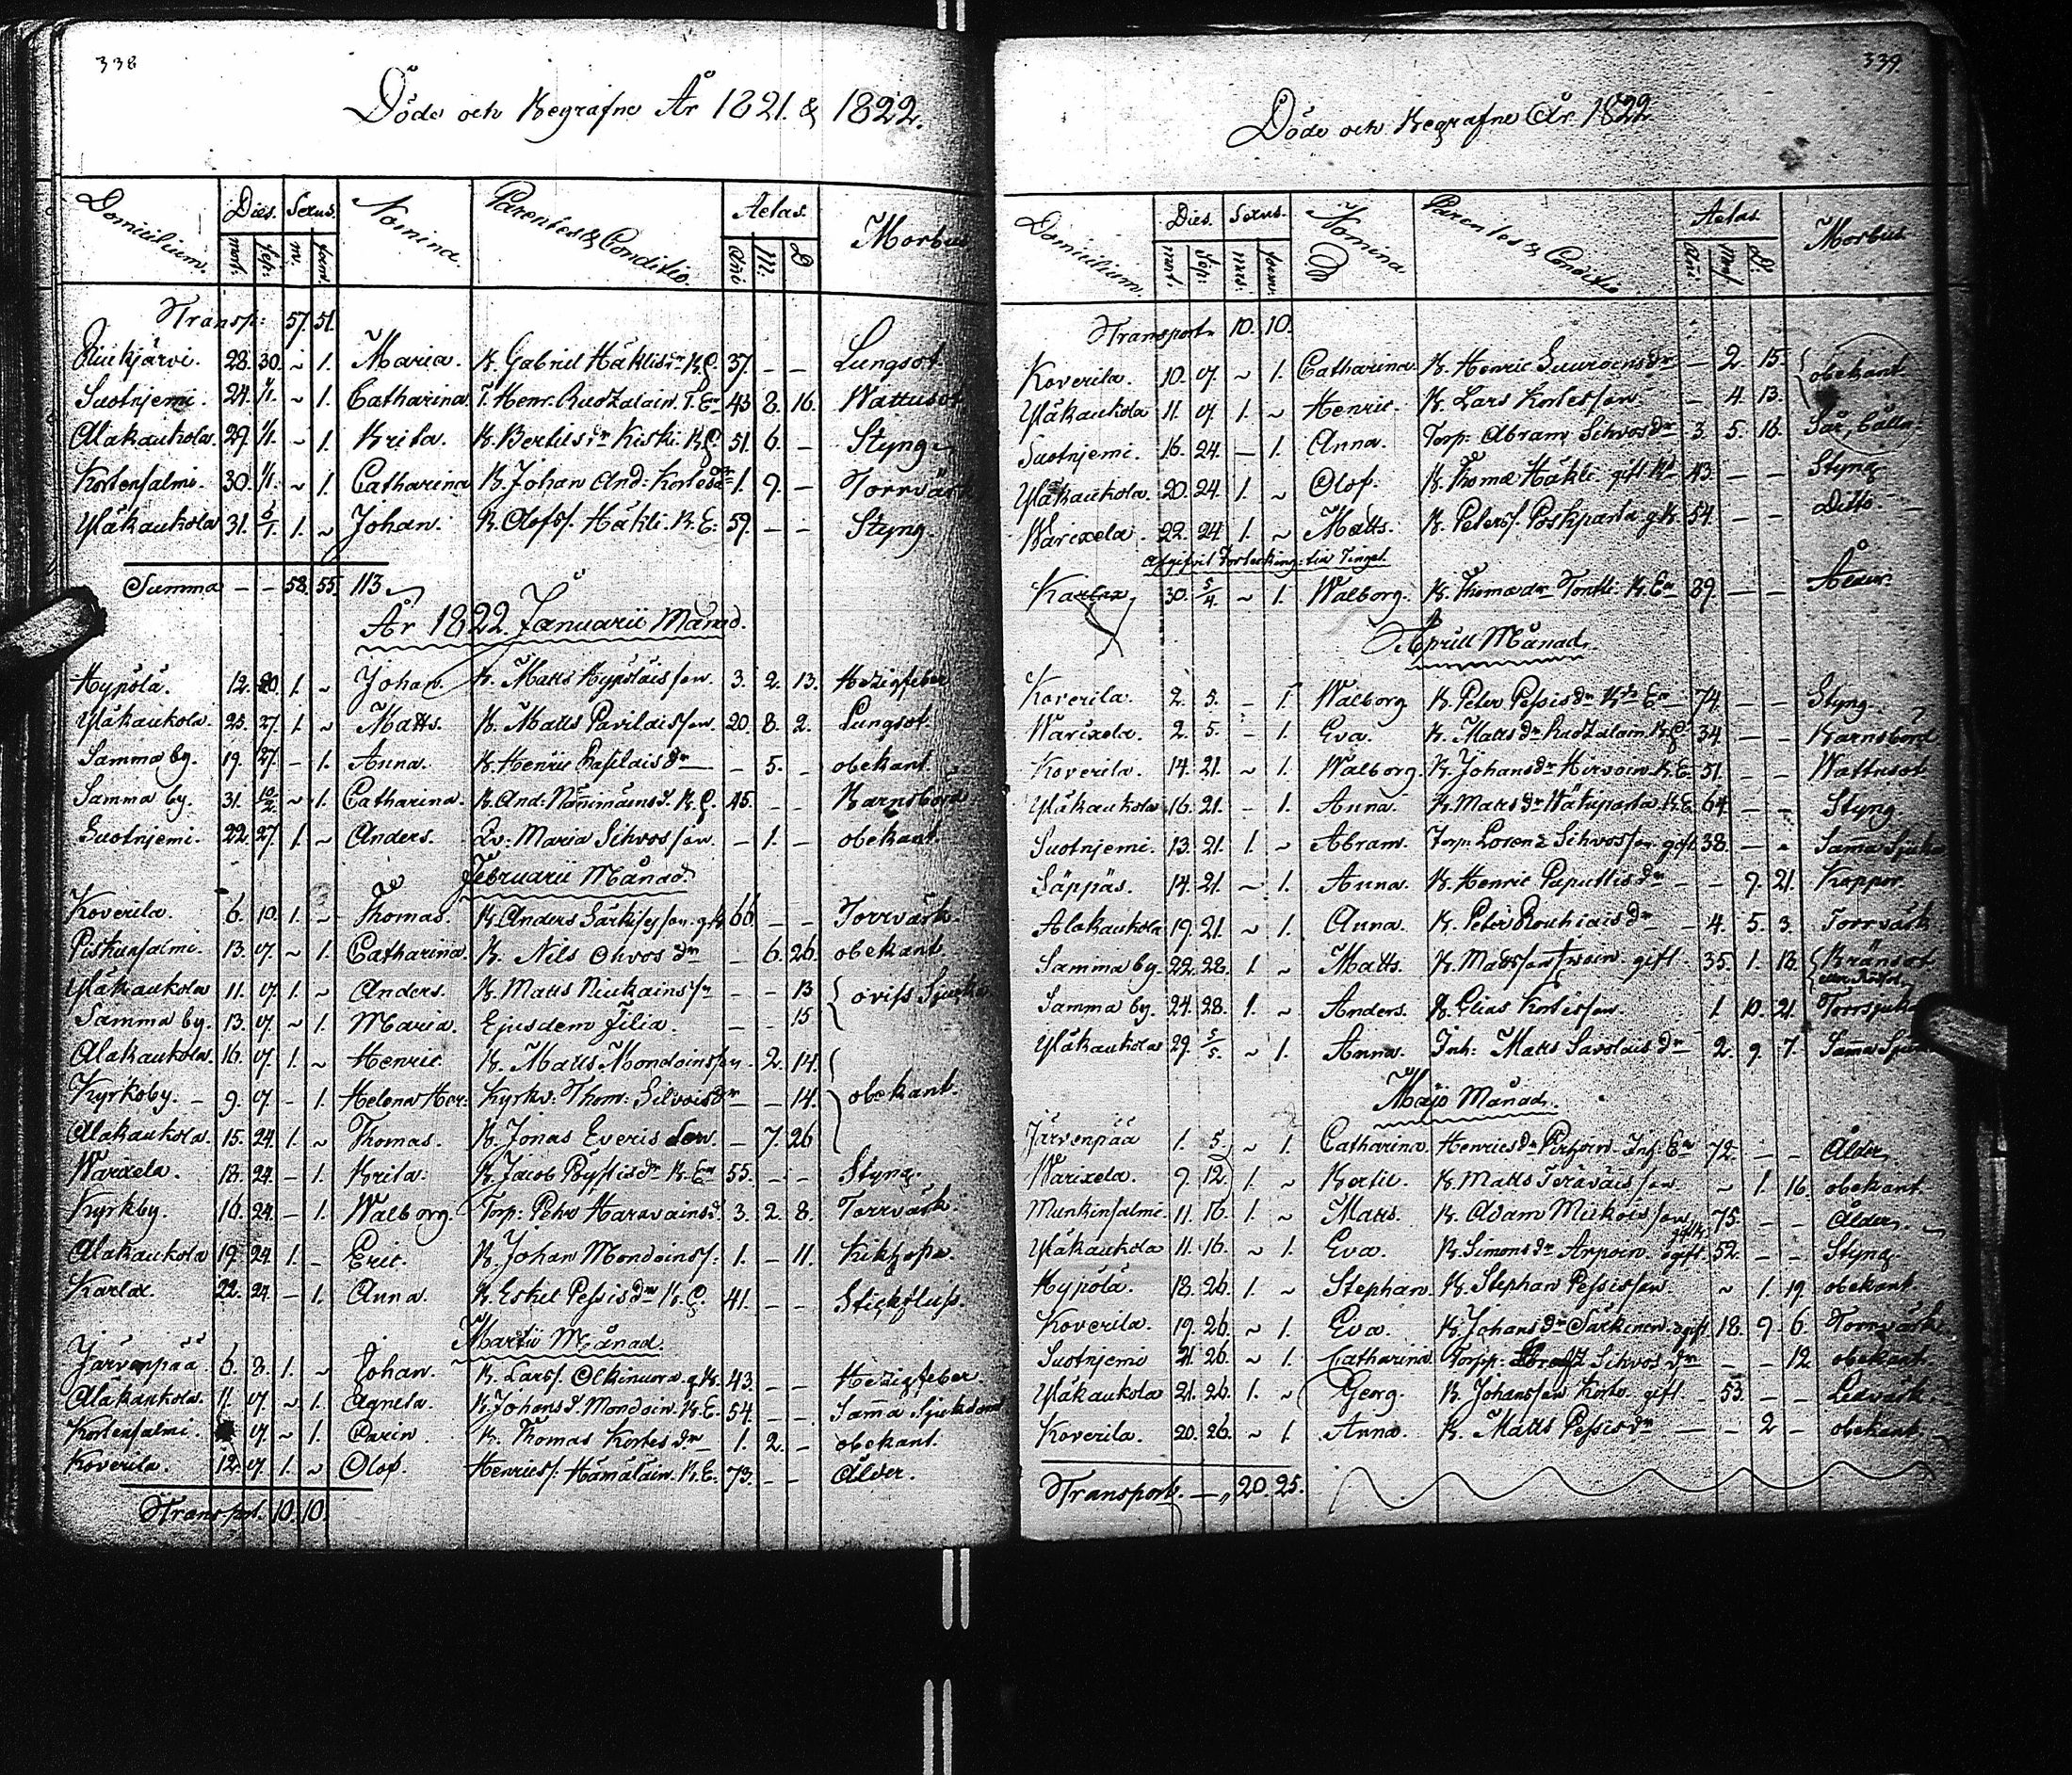 338
Döde och Begrafne År 1821. & 1822.
Domicilium. Dies. Sexus. Nomina. Parentes & Conditio. Aetas. Morbus
mort. sep: m. foem. Añi M: D
Transp: 57. 51.
Riukjärvi. 28. 30. ~ 1. Maria. B. Gabriel Häklis dr B.E. 37. - - Lungsot.
Suotnjemi. 24. 1/1. ~ 1. Catharina. T. Henr. T. En 43 8. 16. Wattusot
Alakaukola. 29. 1/1. - 1. Brita. B. Bertils dr Kiski. B.E. 51. 6. - Styng.
Kortensalmi. 30. 1/1. ~ 1. Catharina B. Johan And: Kortes dr 1. 9. - Torrvärk
Yläkaukola 31. 6/1. 1. ~ Johan. B. Olofs s. Häkli. B.E: 59. - - Styng.
Summa - - 58. 55. 113
År 1822. Januarii Månad.
Hypölä. 12. 20. 1. ~ Johan. B. Matts Hypöläis son. 3. 2. 13. Hezigfeber
Yläkaukola. 25. 27. 1. ~ Matts. B. Matts Pavilais son 20. 8. 2. Lungsot.
Samma by. 19. 27. - 1. Anna. B. Henric Pasilais dr - 5. - obekant.
Samma by. 31. 10/2. ~ 1. Catharina. B. And: Nänimäins d. B.E. 45. - - Barnsbörd
Suotnjemi. 22. 27. 1. ~ Anders. Qv: Maria Sihvos son. - 1. - obekant.
Februarii Månad.
Koverila. 6. 10. 1. ~ Thomas. B. Anders Särkises son. gift 66. - - Torrvärk.
Piskunsalmi. 13. 17. ~ 1. Catharina. B. Nils Ohvos dr - 6. 26. obekant.
Yläkaukola 11. 17. 1. ~ Anders. B. Matts Niukains sn - - 13 oviss Sjuka
Samma by. 13. 17. ~ 1. Maria. Ejusdem filia. - - 15
Alakaukola. 16. 17. 1. ~ Henric. B. Matts Mondoins son. 2. 14.
Kyrkoby. - 9. 17. - 1. Helena Her: Kyrkv: Thom: Silvois dr - - 14. obekant.
Alakaukola. 15. 24. 1. ~ Thomas. B. Jonas Everis Son. - 7. 26
Warixela. 18. 24. - 1. Brita. B. Jacob Pöysis dr B. En 55. - - Styng.
Kyrkby. 16. 24. - 1. Walborg. Torp: Pehr Haravains d. 3. 2. 8. Torrvärk.
Alakaukola 19. 24. 1. - Eric. B. Johan Mondoins s: 1. - 11. Kikhosta.
Karlax. 22. 24. - 1. Anna. B. Eskel Pessis dr B.E. 41. - - Stickfluss.
Martii Månad.
Järvenpää. 6. 8. 1. ~ Johan. B. Lars s. Olkinuora. g B. 43. - - Hezigfeber.
Alakaukola. 11. 17. ~ 1. Agneta. B. Johans d. Mondoin. B.E. 54. - - Sam̄a Sjukdom
Kortensalmi. 17. ~ 1. Carin. B. Thomas Kortes dr 1. 2. - obekant.
Koverila. 12. 17. 1. ~ Olof. Henrics s: Hämäläin. B.E. 73. - - Ålder.
Transport. 10. 10.
339.
Döde och Begrafne År. 1822
Domicilium. Dies. Sexus. Nomina Parentes & Conditio Aetas Morbus.
mort. sep: mas: foem: Añi: Mens D:
Transport 10. 10.
Koverila. 10. 17. ~ 1. Catharina. B. Henric Suuroins dr - 2. 15. obekant
Yläkaukola 11. 17. 1. ~ Henric. B. Lars Kortes son. - 4. 13.
Suotnjemi. 16. 24. - 1. Anna. Torp: Abram Sihvos dr 3. 5. 18.
Yläkaukola. 20. 24. 1. ~ Olof. B. Thomæ Häkli. gift Bd 43. - - Styng
Warixela. 22. 24 1. ~ Matts. B. Peters s. Poskparta g B. 54. - - Ditto.
Karlax 30. 5/4. ~ 1. Walborg. B. Thomæ dr Tontti. B. En 89. - - Ålder.
Aprill Månad.
Koverila. 2. 5. - 1. Walborg B. Peter Pessis dr Bde En 74. - - Styng.
Warixela. 2. 5. - 1. Eva. B. Matts dr B.E. 34. - - Barnsbörd
Koverila. 14. 21. ~ 1. Walborg. B. Johans dr Hirvoin. B.E. 51. - - Wattusot
Yläkaukola 16. 21. - 1. Anna. B. Matts dr Häkiparta B.E. 64. - - Styng
Suotnjemi. 13. 21. 1. ~ Abram. Torp: Lorenz Sihvos son. gift 38. - - Sam̄a Sjuka
Säppäs. 14. 21. ~ 1. Anna. B. Henric Puputtis dr - - 9. 21. Koppor.
Alakaukola 19. 21. ~ 1. Anna. B. Peter Rouhiais dr - 4. 5. 3. Torrvärk
Samma by. 22. 28. 1. ~ Matts. B. Matts son gift. 35. 1. 18. Bränsot
Samma by. 24. 28. 1. ~ Anders. B. Elias Kortes son. 1. 10. 21. Torrsjuka
Yläkaukola 29. 5/5. ~ 1. Anna. Inh: Matts Savolais dr 2. 9. 7. Sam̄a Sjuka
Maji Månad.
Järvenpää 1. 5. ~ 1. Catharina Henrics dr Pirhoin. Inh. En 72. - - Ålder.
Warixela. 9. 12. 1. ~ Bertil. B. Matts Teräväis son ~ 1. 16. obekant.
Munkinsalmi. 11. 16. 1. ~ Matts. B. Adam Mickois son gift B 75. - - Ålder.
Yläkaukola 11. 16. ~ 1. Eva. B. Simons dr Arpoin. ogift. 52. - - Styng
Hypölä. 18. 26. 1. ~ Stephan. B. Stephan Pessis son. ~ 1. 19. obekant
Koverila. 19. 26. ~ 1. Eva. B. Johans dr Särkinen. ogift. 18. 9. 6. Torrvärk
Suotnjemi 21. 26. ~ 1. Catharina Torpp: Sihvos dr - - 12 obekant.
Yläkaukola 21. 26. 1. ~ Georg. B. Johans son Korte. gift. 53. - - Ledvärk
Koverila. 20. 26. ~ 1 Anna. B. Matts Pessis dr - - 2 - obekant.
Transport. - 20. 25.